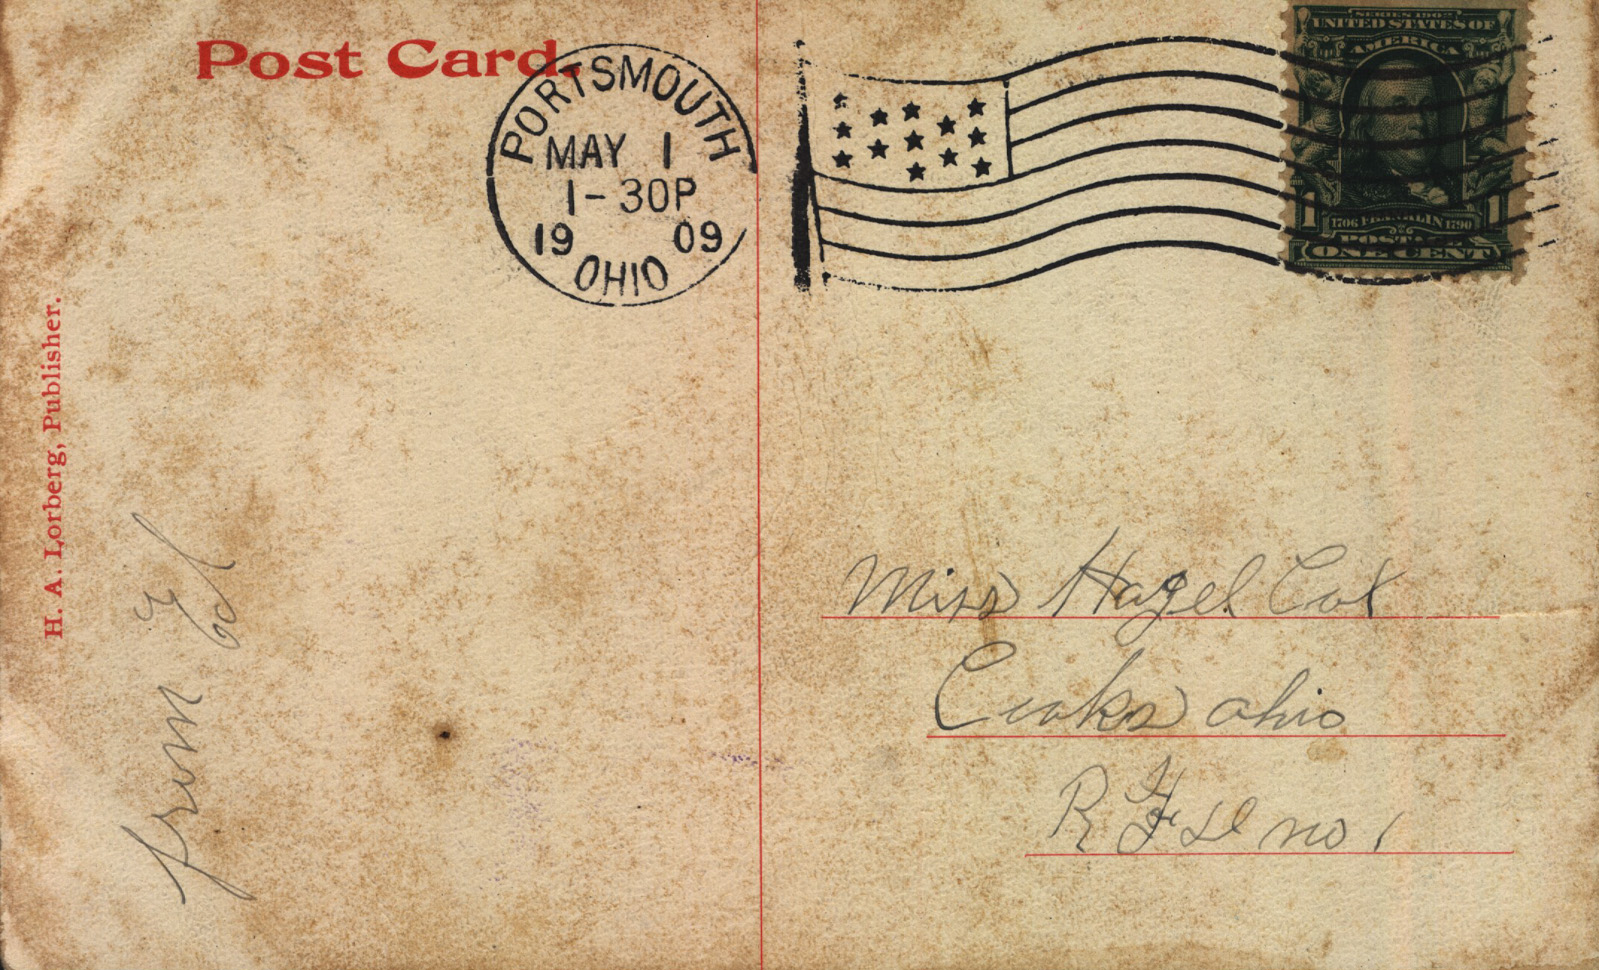 Post Card.
PORTSMOUTH
MAY 1
1-30P
19 09
OHIO
SERIES 1902
UNITED STATES OF
AMERICA
1 1
1706 FRANKLIN 1790
POSTAGE
ONE CENT
H. A. Lorberg, Publisher.
from Ed
Miss Hazel Cox
ohio
R F D no 1